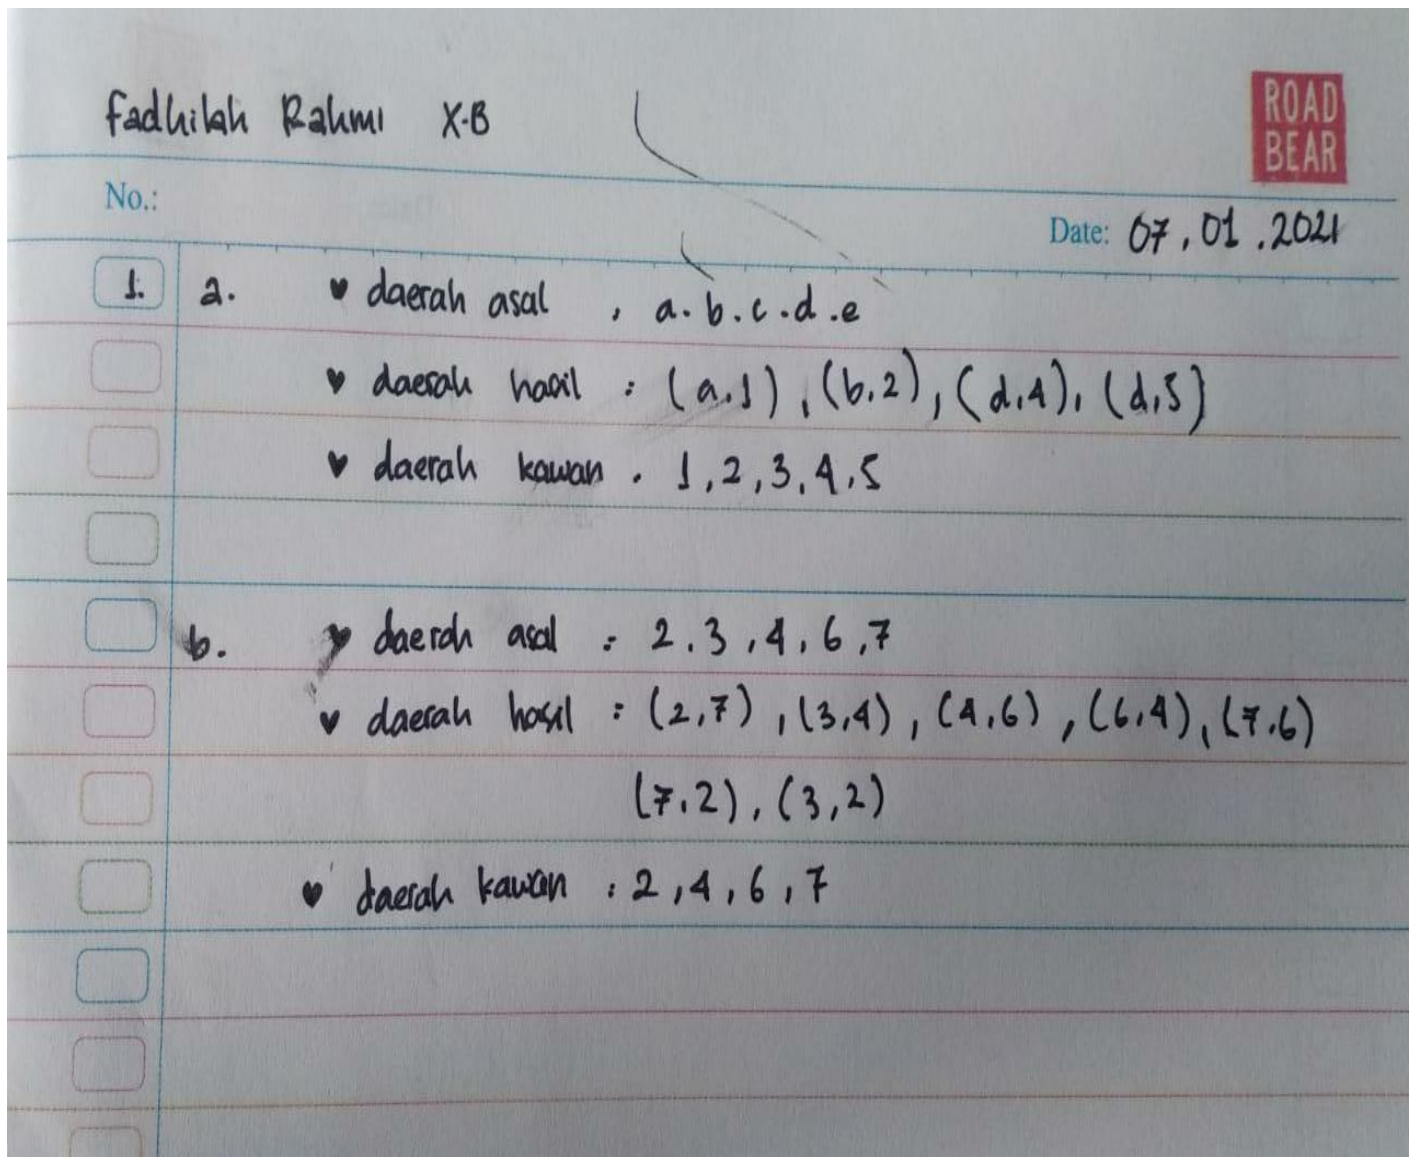 Fadhilah Rahmi X-B
ROAD
BEAR
No.:
Date: 07, 01 . 2021
1. a. ♥ daerah asal , a. b. c. d. e
♥ daerah hasil : (a,1), (b,2), (d,4), (d,5)
♥ daerah kawan . 1, 2, 3, 4, 5
b. ♥ daerah asal : 2, 3, 4, 6, 7
♥ daerah hasil : (2,7), (3,4), (4,6), (6,4), (7,6)
(7,2), (3,2)
♥ daerah kawan : 2, 4, 6, 7